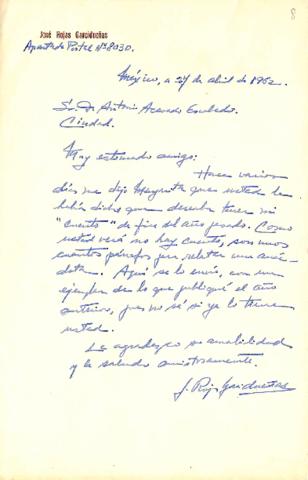 8
José Rojas Garcidueñas
Apartado Postal Nº 8030.
México, a 27 de abril de 1962.
Sr. Dr. Antonio Acevedo Escobedo.
Ciudad.
Muy estimado amigo:
Hace varios
días me dijo Margarita que usted le
había dicho que deseaba tener mi
"cuento" de fines del año pasado. Como
usted verá no hay cuento, son unos
cuantos párrafos que relatan una anéc-
dota. Aquí se lo envío, con un
ejemplar de lo que publiqué el año
anterior, pues no sé si ya lo tiene
usted.
Le agradezco su amabilidad
y lo saludo amistosamente.
J. Rojas Garcidueñas